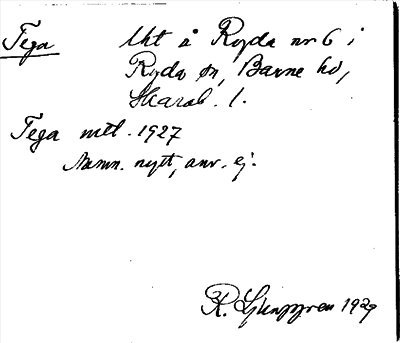 Tega Uht å Ryda nr 6 i
Ryda sn, Barne hd,
Skarab. l.
Tega mtl. 1927
Namn. nytt, anv. ej.
R. Ljunggren 1929